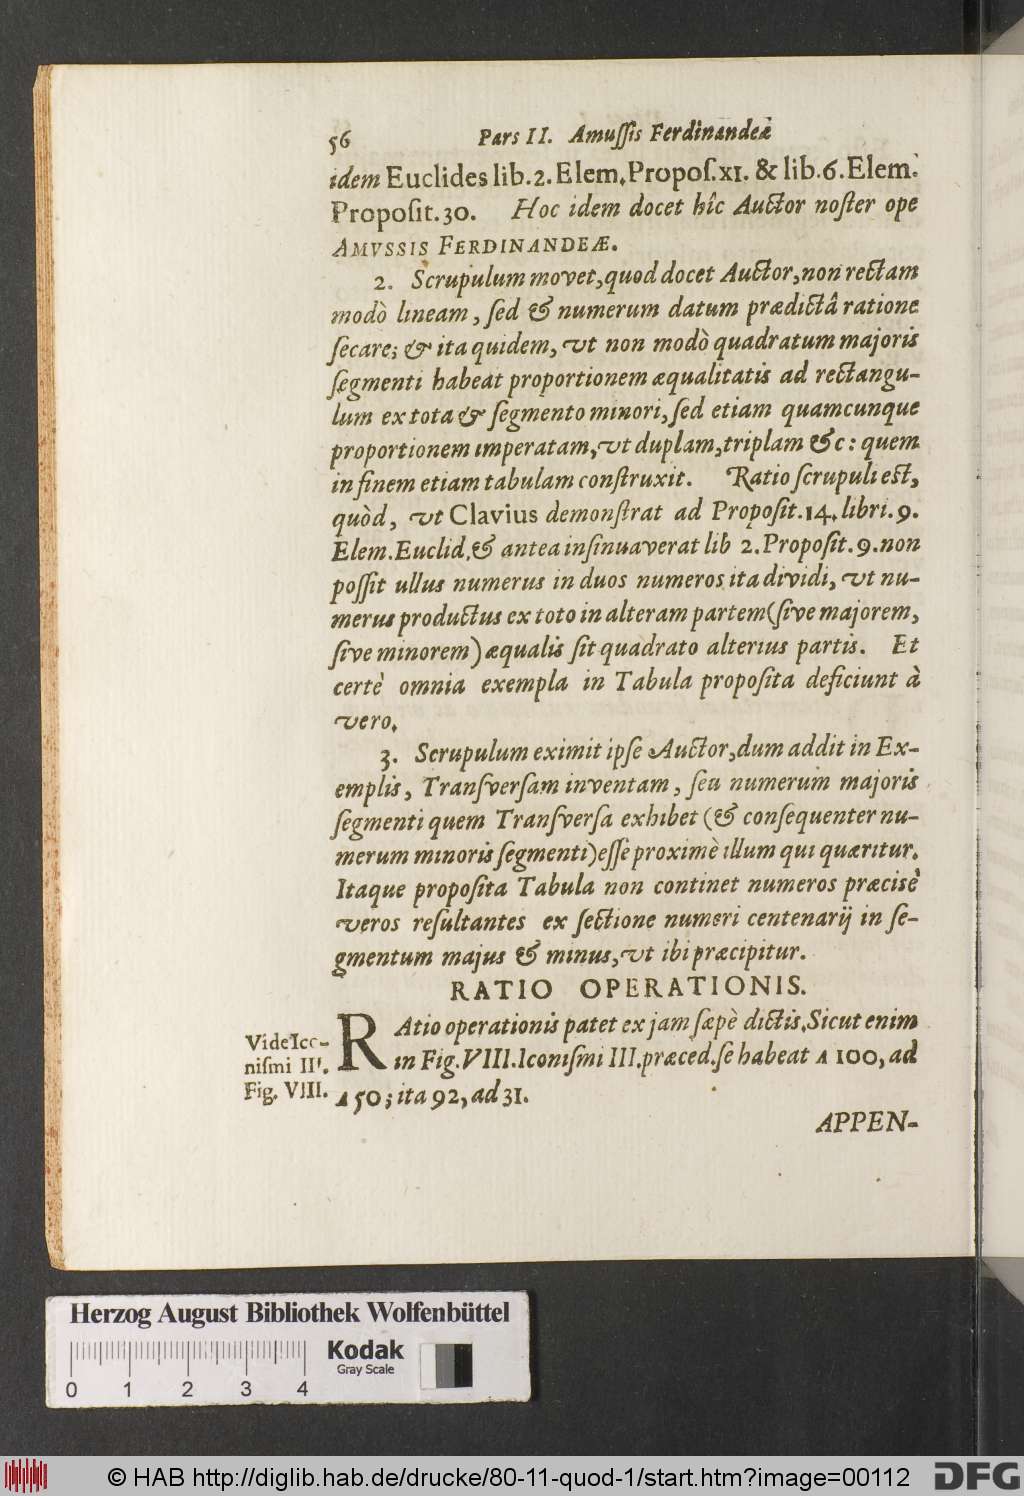 56 Pars II. Amuſſis Ferdinandeæ
idem Euclides lib. 2. Elem. Propoſ. xi. & lib. 6. Elem.
Propoſit. 30. Hoc idem docet hîc Auctor noſter ope
AMVSSIS FERDINANDEÆ.
2. Scrupulum movet, quod docet Auctor, non rectam
modò lineam, ſed & numerum datum prædictâ ratione
ſecare; & ita quidem, vt non modò quadratum majoris
ſegmenti habeat proportionem æqualitatis ad rectangu-
lum ex tota & ſegmento minori, ſed etiam quamcunque
proportionem imperatam, vt duplam, triplam &c: quem
in finem etiam tabulam conſtruxit. Ratio ſcrupuli eſt,
quòd, vt Clavius demonſtrat ad Propoſit. 14. libri. 9.
Elem. Euclid. & antea inſinuaverat lib 2. Propoſit. 9. non
poſſit ullus numerus in duos numeros ita dividi, vt nu-
merus productus ex toto in alteram partem (ſive majorem,
ſive minorem) æqualis ſit quadrato alterius partis. Et
certè omnia exempla in Tabula propoſita deficiunt à
vero.
3. Scrupulum eximit ipſe Auctor, dum addit in Ex-
emplis, Tranſverſam inventam, ſeu numerum majoris
ſegmenti quem Tranſverſa exhibet (& conſequenter nu-
merum minoris ſegmenti) eſſe proximè illum qui quæritur.
Itaque propoſita Tabula non continet numeros præcisè
veros reſultantes ex ſectione numeri centenarij in ſe-
gmentum majus & minus, vt ibi præcipitur.
RATIO OPERATIONIS.
RAtio operationis patet ex jam ſæpè dictis. Sicut enim
in Fig. VIII. Iconiſmi III. præced. ſe habeat A 100, ad
A 50; ita 92, ad 31.
Vide Ico-
niſmi III.
Fig. VIII.
APPEN-
Herzog August Bibliothek Wolfenbüttel
Kodak
Gray Scale
0 1 2 3 4
© HAB http://diglib.hab.de/drucke/80-11-quod-1/start.htm?image=00112
DFG